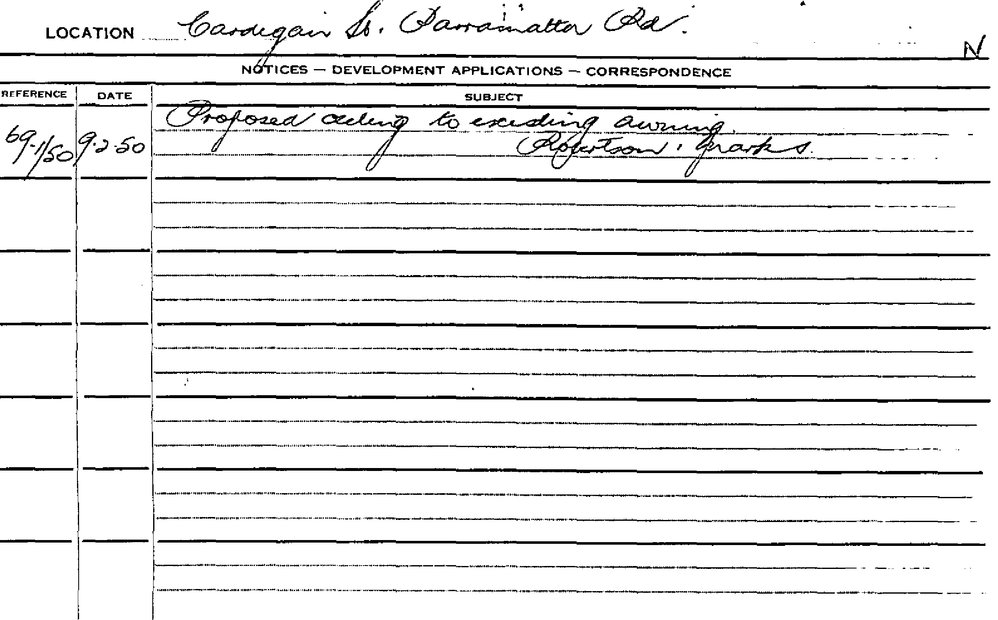 LOCATION Cardigan St. Parramatta Rd.
N
NOTICES — DEVELOPMENT APPLICATIONS — CORRESPONDENCE
REFERENCE DATE SUBJECT
Proposed ceiling to existing awning.
69-1/50 9-2-50 Robertson & Marks.